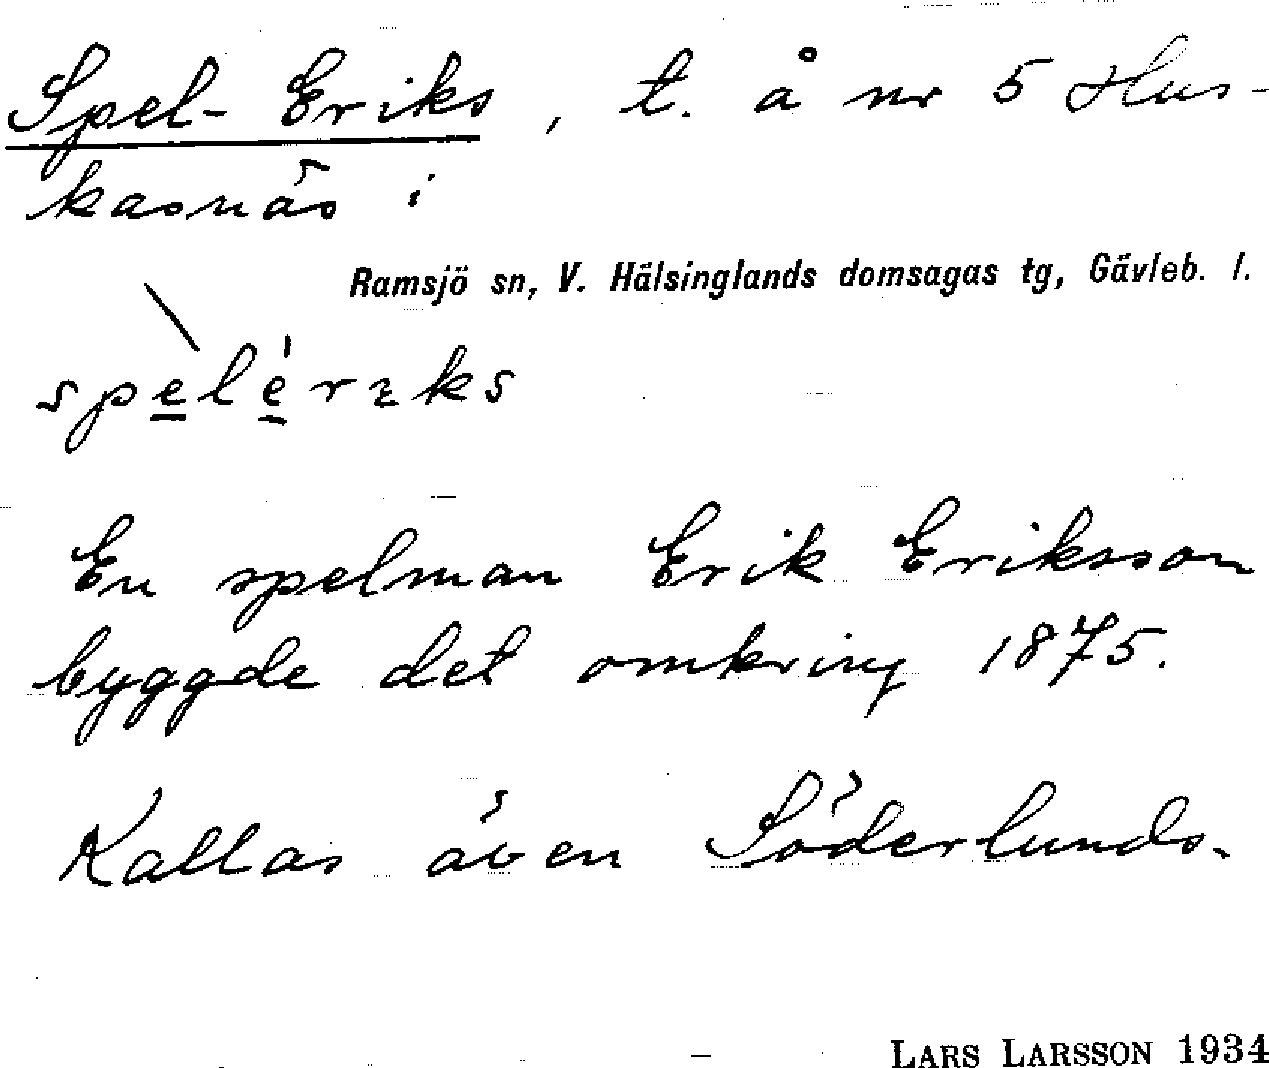 Spel-Eriks, t. å nr 5 Hus-
kasnäs i
Ramsjö sn, V. Hälsinglands domsagas tg, Gävleb. l.
spe̲lé̲rɪks
En spelman Erik Eriksson
byggde det omkring 1875.
Kallas även Söderlunds.
LARS LARSSON 1934